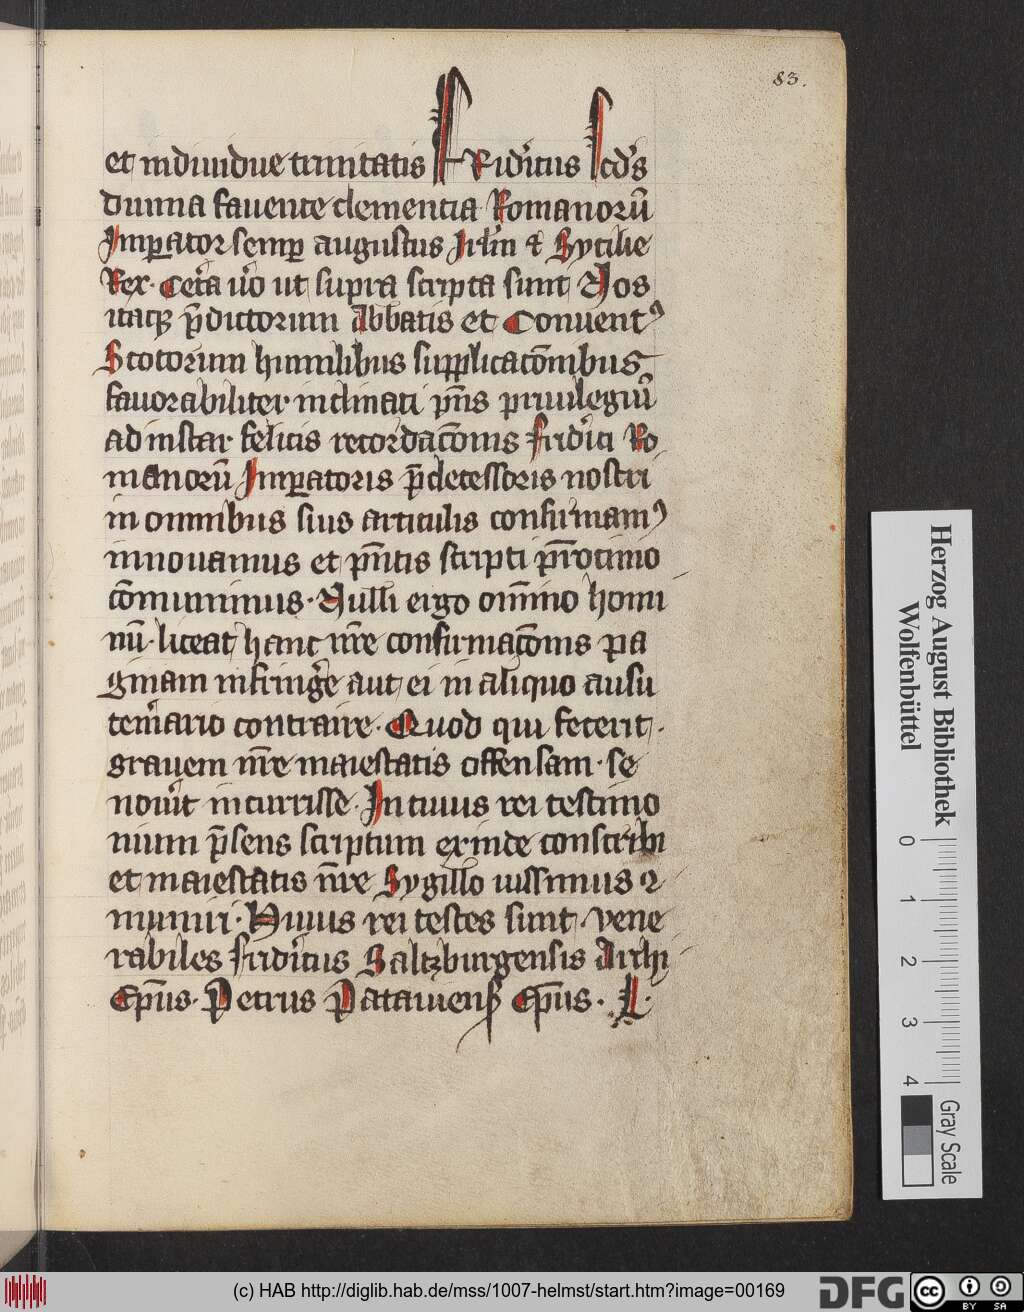 83.
et indiuidue trinitatis FRidi͛cus Scd͛s
diuina fauente clementia Romanorū
Imꝑator semꝑ augustus Irl̅m ⁊ Sycilie
Rex · Cet͛a u͛o ut supra scripta sunt Nos
itaqꝫ p̅dictorum abbatis et Conuentꝰ
Scotorum humilibus supplicac̅onibus
fauorabiliter inclinati p̅ns priuilegiū
ad instar felicis recordac̅onis Frid͛ici Ro
manorū Imꝑatoris p̅decessoris nostri
in omnibus suis articulis confirmamꝰ
innouamus et p̅ntis scripti p̅rocinio
cōmunimus · Nulli ergo om̅ino homi
nū · liceat hanc nr̅e confirmac̅onis pa
ginam infring͛e aut ei in aliquo ausu
tem͛ario contraire · Quod qui fecerit ·
grauem nr̅e maiestatis offensam · se
nou͛it incurrisse · In cuius rei testimo
nium p̅sens scriptum exinde conscribi
et maiestatis nr̅e Sygillo iussimus
muniri · Huius rei testes sunt · vene
rabiles frid͛icus Saltzburgensis Archi
Ep̅us · Petrus Patauienẜ Ep̅us · L ·
Herzog August Bibliothek
Wolfenbüttel
0 1 2 3 4
Gray Scale
(c) HAB http://diglib.hab.de/mss/1007-helmst/start.htm?image=00169
DFG
cc BY SA